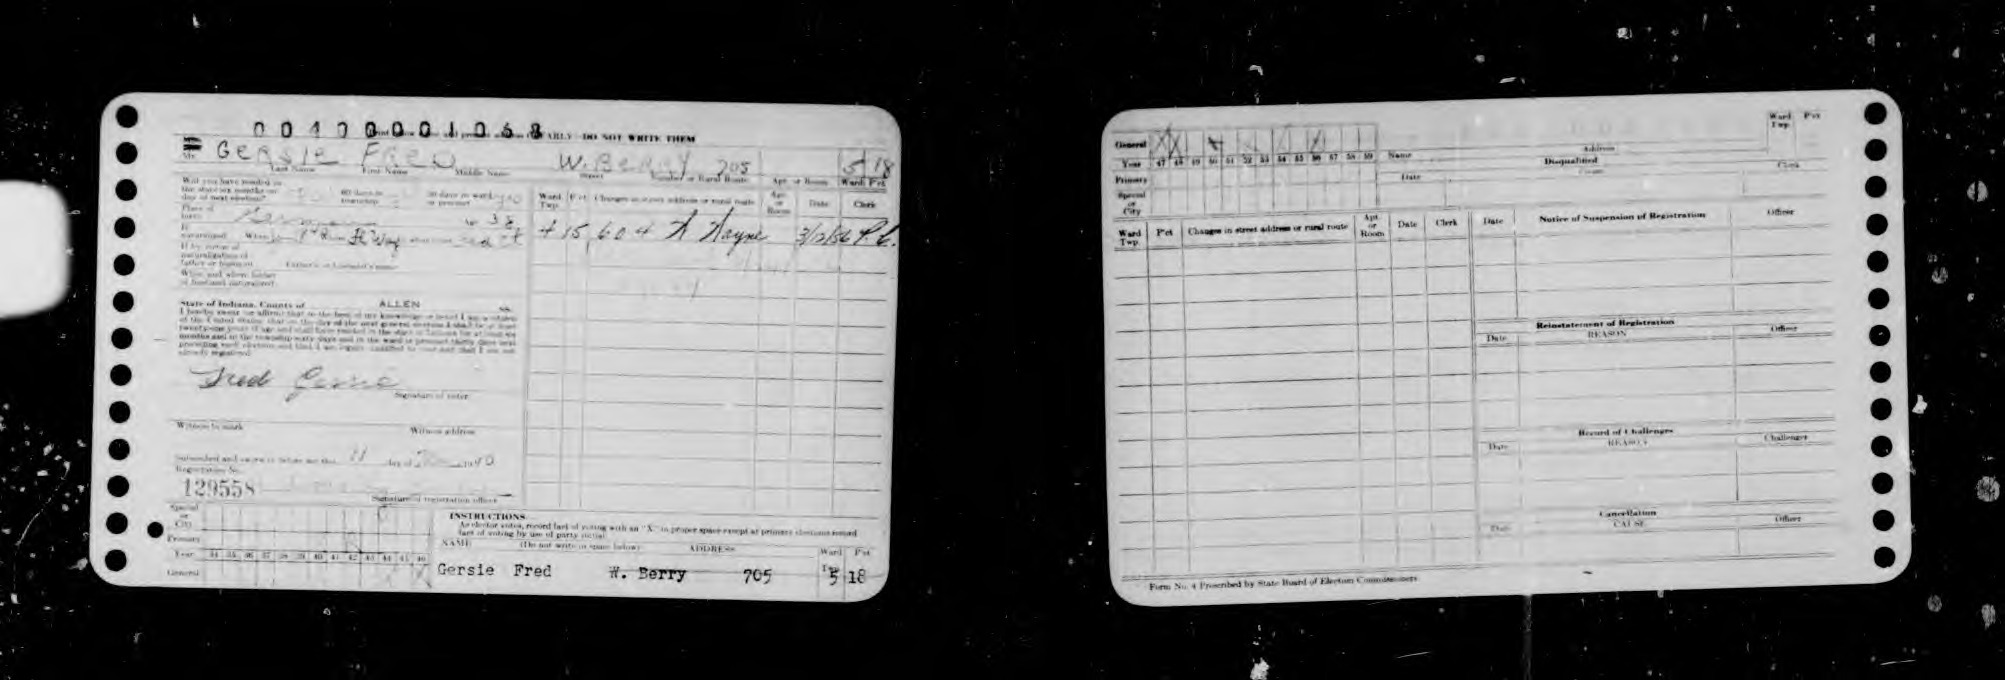 00400001068
ARLY - DO NOT WRITE THEM
Mr. GERSIE FRED W. BERRY 705 5 18
Last Name First Name Middle Name Street Number or Rural Route Apt. or Room Ward Pct
Will you have resided in
the state six months on
day of next election? 60 days in township 30 days in ward or precinct yes
Place of birth Germany Age 38
If naturalized When Where Ft Way
If by virtue of
naturalization of
father or husband
When and where father
or husband naturalized
Ward Twp. Pct Changes in street address or rural route Apt. or Room Date Clerk
4 15 604 W Wayne 3/12/56 P.C.
State of Indiana, County of ALLEN ss.
I hereby swear (or affirm) that to the best of my knowledge or belief I am a citizen
of the United States, that on the day of the next general election I shall be at least
twenty-one years of age and shall have resided in the state of Indiana for at least six
months and in the township sixty days and in the ward or precinct thirty days next
preceding such election and that I am legally qualified to vote and that I am not
already registered.
Fred Gersie
Signature of voter
Witness to mark Witness address
Subscribed and sworn to before me this 11 day of 1940
Registration No.
129558
Signature of registration officer
Special or City
Primary
Year 34 35 36 37 38 39 40 41 42 43 44 45 46
General
INSTRUCTIONS
As elector votes, record fact of voting with an "X" in proper space except at primary elections record
fact of voting by use of party initial
NAME (Do not write in space below) ADDRESS Ward Twp. Pct
Gersie Fred W. Berry 705 5 18
General X X X X
Year 47 48 49 50 51 52 53 54 55 56 57 58 59
Primary
Special or City
Ward Twp. Pct
Name Address
Disqualified
Date Cause Clerk
Ward Twp. Pct Changes in street address or rural route Apt. or Room Date Clerk
Date Notice of Suspension of Registration Officer
Reinstatement of Registration
Date REASON Officer
Record of Challenges
Date REASON Challenger
Cancellation
Date CAUSE Officer
Form No. 4 Prescribed by State Board of Election Commissioners